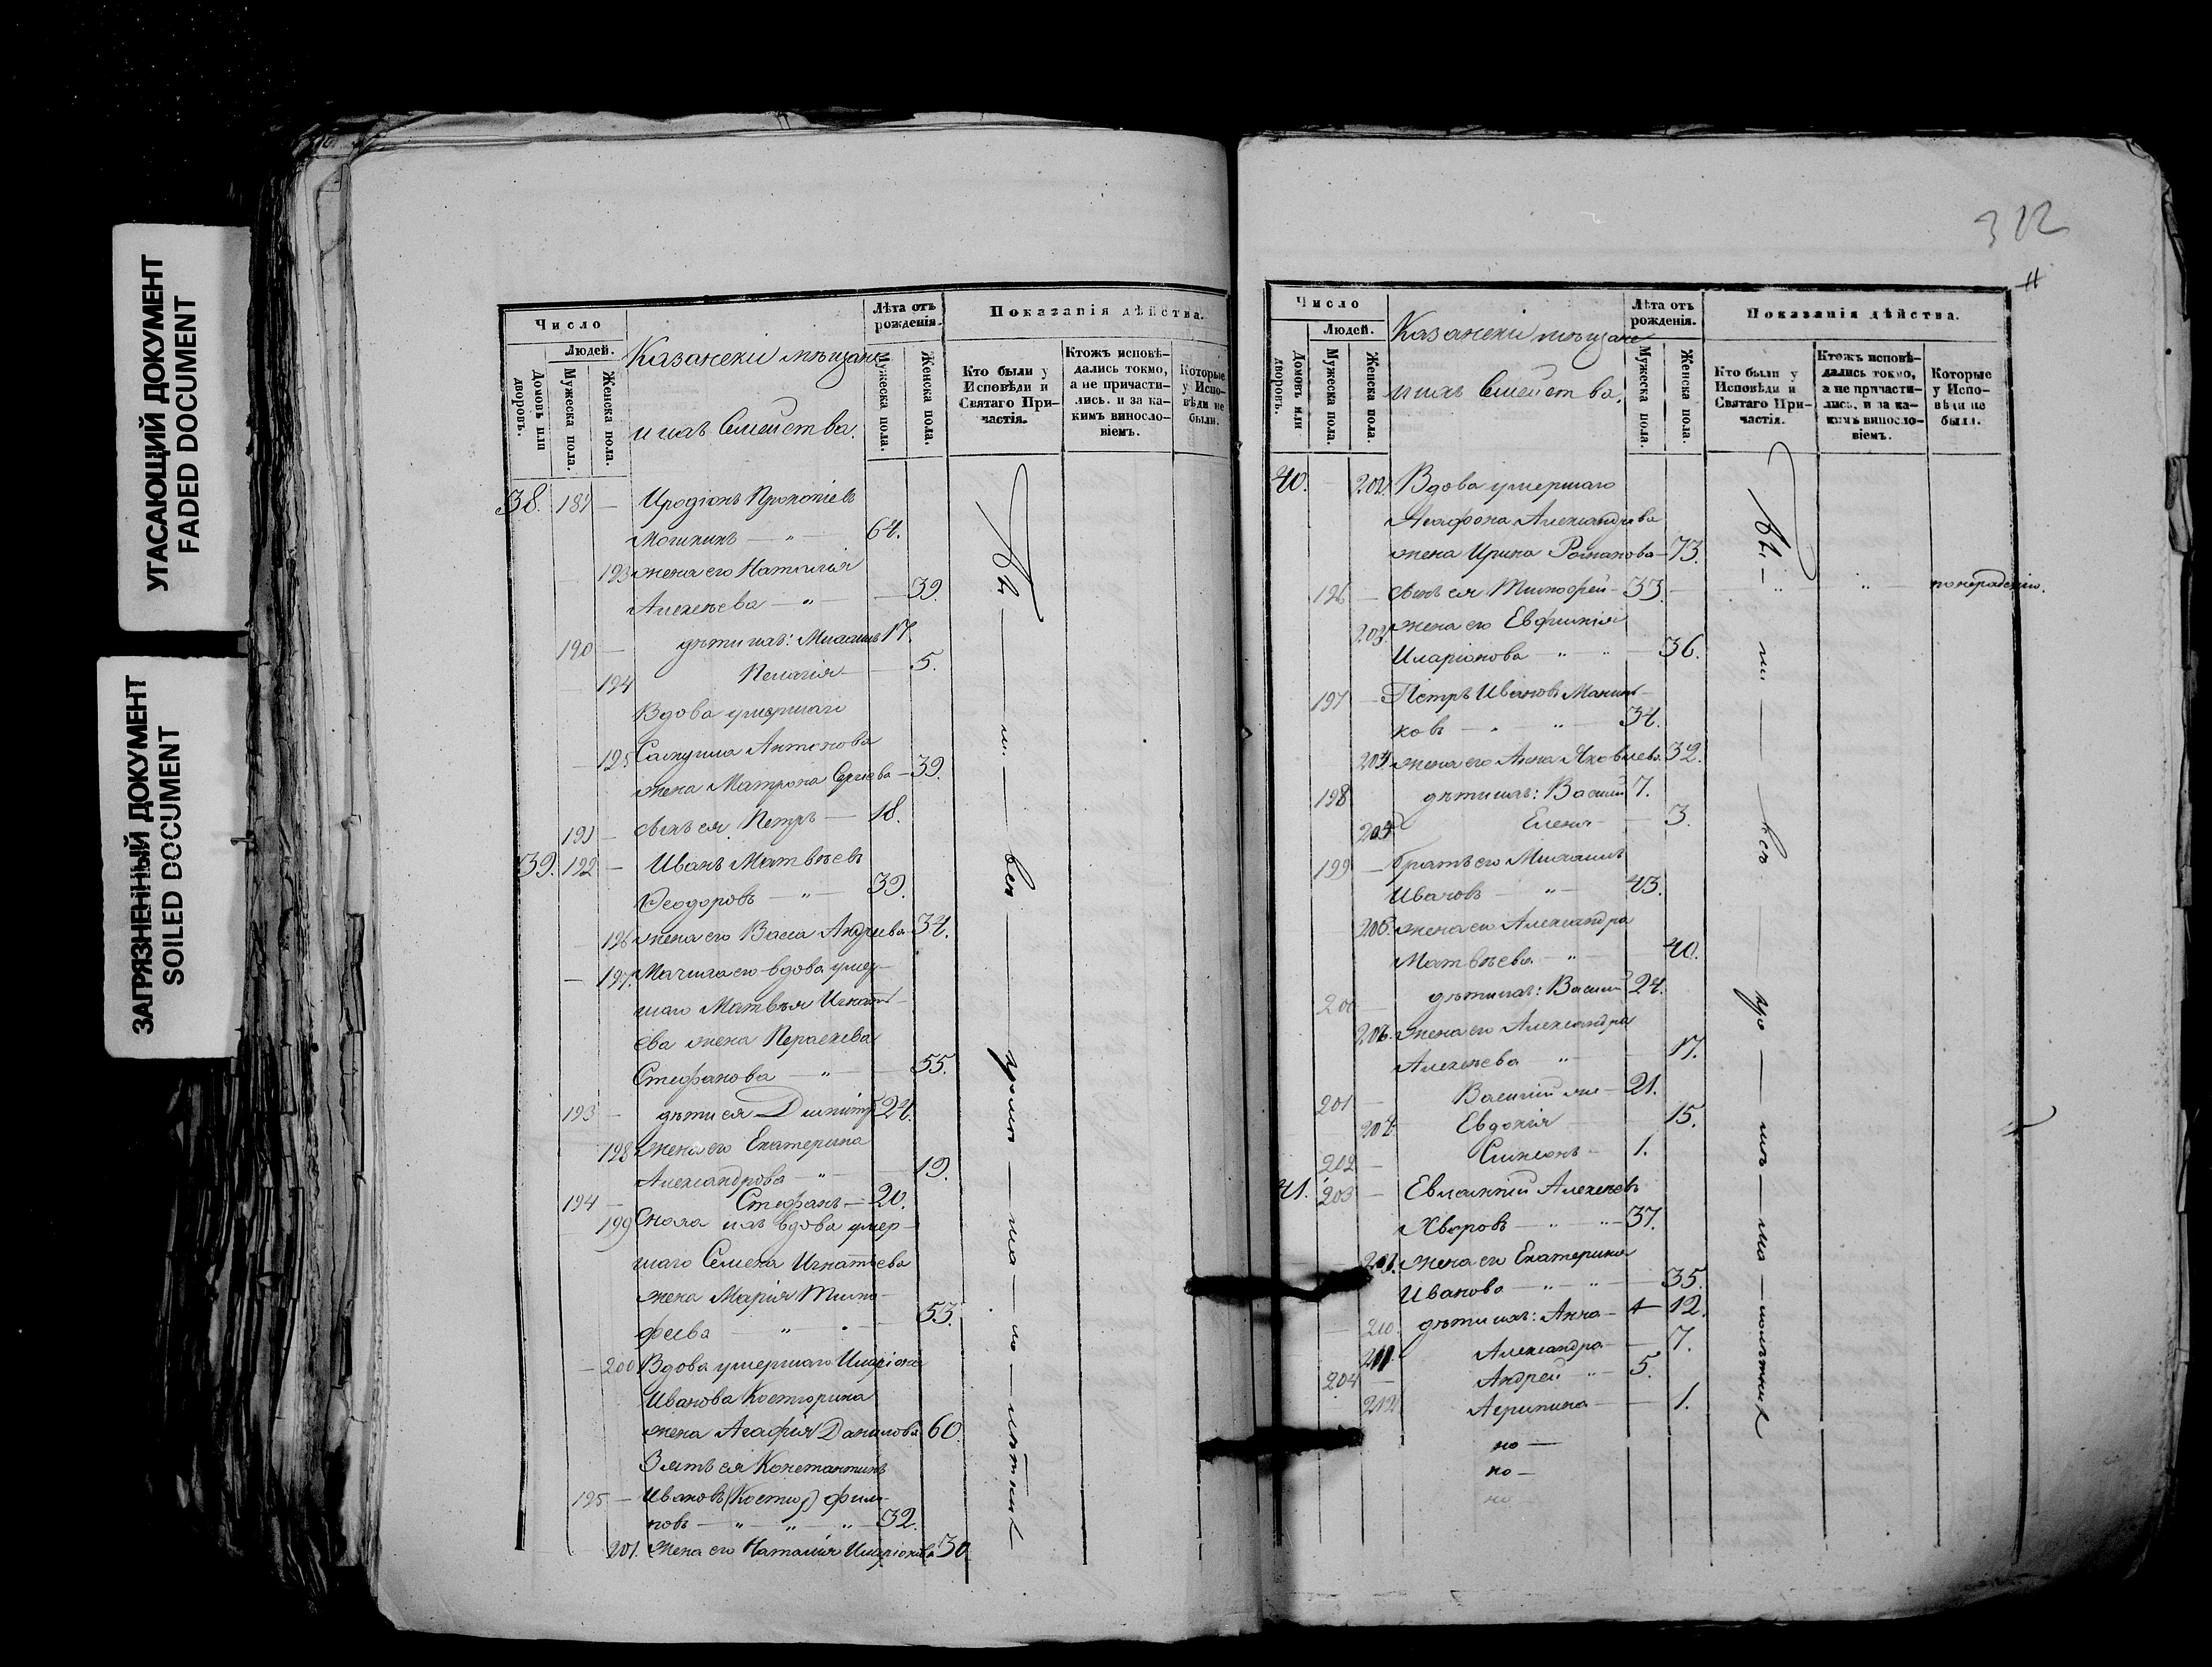 УГАСАЮЩИЙ ДОКУМЕНТ
FADED DOCUMENT
ЗАГРЯЗНЕННЫЙ ДОКУМЕНТ
SOILED DOCUMENT
Число
Людей.
Домовъ или дворовъ.
Мужеска пола.
Женска пола.
Казанскіи мѣщане
и ихъ Семейства.
Лѣта отъ рожденія.
Мужеска пола.
Женска пола.
Показанія дѣйства.
Кто были у Исповѣди и Святаго При-
частія.
Ктожъ исповѣ-
дались токмо,
а не причасти-
лись. и за ка-
кимъ виносло-
віемъ.
Которые
у Испо-
вѣди не
были.
38. 189 — Иродіонъ Прокопіевъ
64.
193 жена его Наталія
Алексѣева — " — 39.
190 — дѣти ихъ: Михаилъ 17.
194 Пелагія — 5.
Вдова умершаго
195 Антонова
жена Матрона Сергѣева — 39.
191 — сынъ ея Петръ — 18.
39. 192 — Иванъ Матвѣевъ
Ѳеодоровъ — " — 39.
196 жена его Васса Андреева 34.
— 197. Мачиха его вдова умер-
шаго Матвѣя Игнатъ-
ева жена Параскева
Стефанова — " — 55.
193 — дѣти ея Димитр 24.
198 жена его Екатерина
Александрова — " — 19.
194 — Стефанъ — 20.
199 Сноха ихъ вдова умер-
шаго Семена Игнатьева
жена Марія Тимо-
феева — " — 53.
— 200 Вдова умершаго Иларіона
Иванова
жена Агафія Данилова 60.
Зять ея Константинъ
195 — Ивановъ Филип-
повъ — " — " — " — 32.
201. жена его Наталія Иларіонова 30
Бы — ли — вси — кромѣ — ма — ло — лѣтних
312
Число
Людей.
Домовъ или дворовъ.
Мужеска пола.
Женска пола.
Казанскіи мѣщане
и ихъ Семейства.
Лѣта отъ рожденія.
Мужеска пола.
Женска пола.
Показанія дѣйства.
Кто были у
Исповѣди и
Святаго При-
частія.
Ктожъ исповѣ-
дались токмо,
а не причасти-
лись. и за ка-
кимъ виносло-
віемъ.
Которые
у Испо-
вѣди не
были.
40. 202 Вдова умершаго
Агафона Александрова
жена Ирина Романова — 73.
196 — сынъ ея Тимофей — 33. — " — " — по нерадѣнію.
203 жена его Евфимія
Иларіонова — " — " — 36.
197 — Петръ Ивановъ
ковъ — " — 34.
204. жена его Анна Яковлева. 32.
198 дѣти ихъ: Василій 7.
205 Елена — 3.
199 — братъ его Михаилъ
Ивановъ — " — 43.
206. жена его Александра
Матвѣева — " — 40.
200 — дѣти ихъ: Василій 24.
жена его Александра
Алексѣева " — 17.
201 — Василій же — 21.
Евдокія 15.
202 — Симеонъ — 1.
41. 203 — Евлампій Алексѣевъ
Хворовъ — " — " — 37.
жена его Екатерина
Иванова — " — " — 35.
210. дѣти ихъ: Анна — 12.
211. Александра — 7.
204 — Андрей — " — 5.
212 Агрипина — 1.
но —
но —
но
Бы — ли — вси — кро — мѣ — ма — лолѣтних